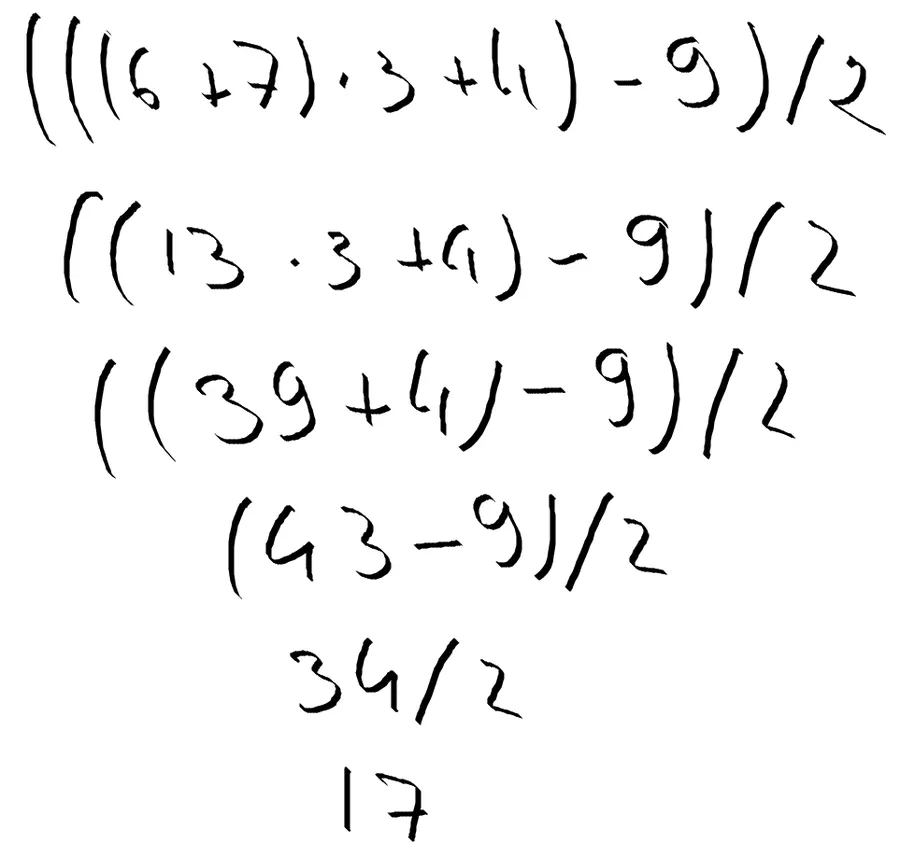 (((6+7)·3+4)-9)/2
((13·3+4)-9)/2
((39+4)-9)/2
(43-9)/2
34/2
17